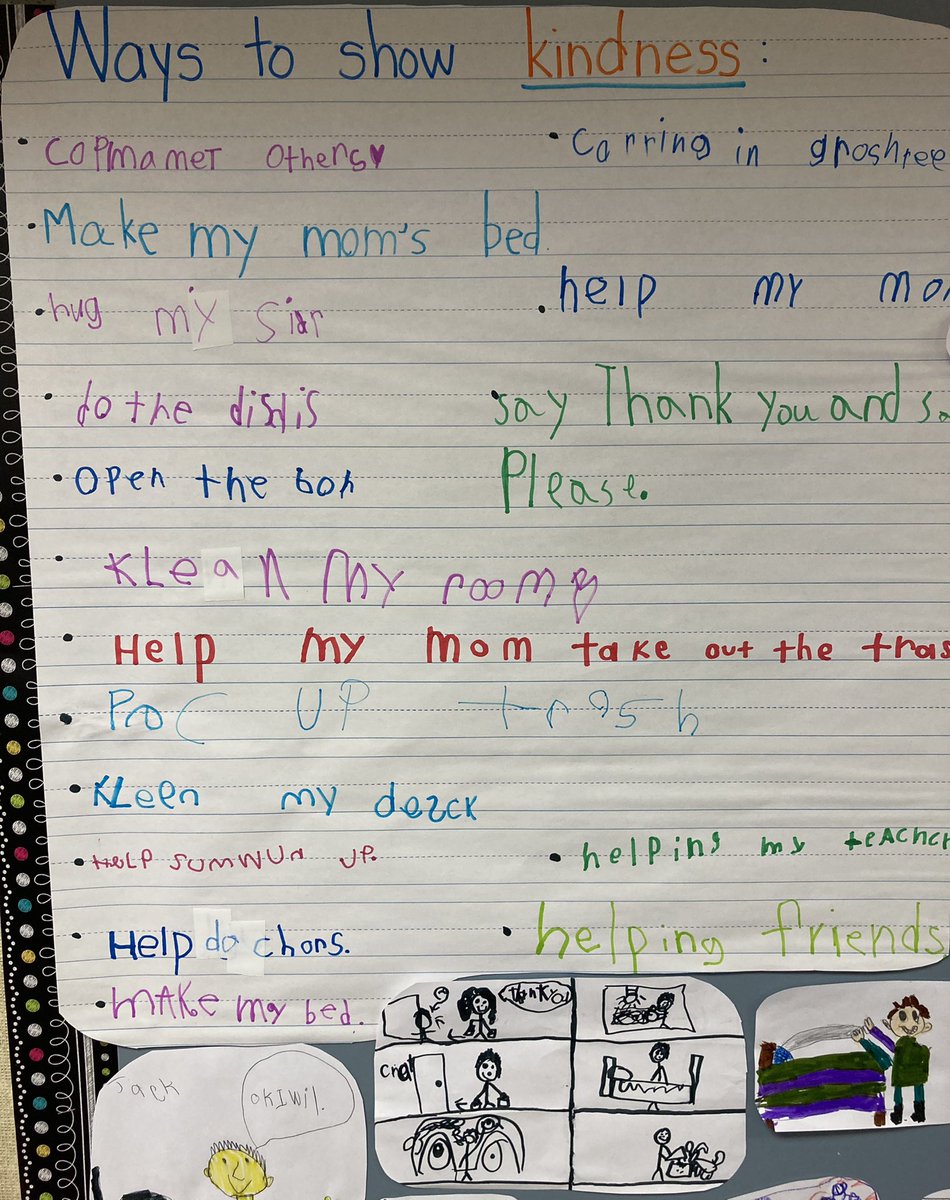 Ways to show kindness:
• COPMAMET OTHERS♥
• Carring in groshree
• Make my mom's bed.
• hug my Sisr
• help my mo
• do the dishis
• say Thank you and sa
Please.
• Open the boh
• KLean My room
• Help my mom take out the tras
• Proc UP trash
• KLeen my dezck
• HeLP SUMWUn UP.
• helping my teacher
Help do chors.
• helping friends
• MAKe my bed.
thank you
Jack
okIwil.